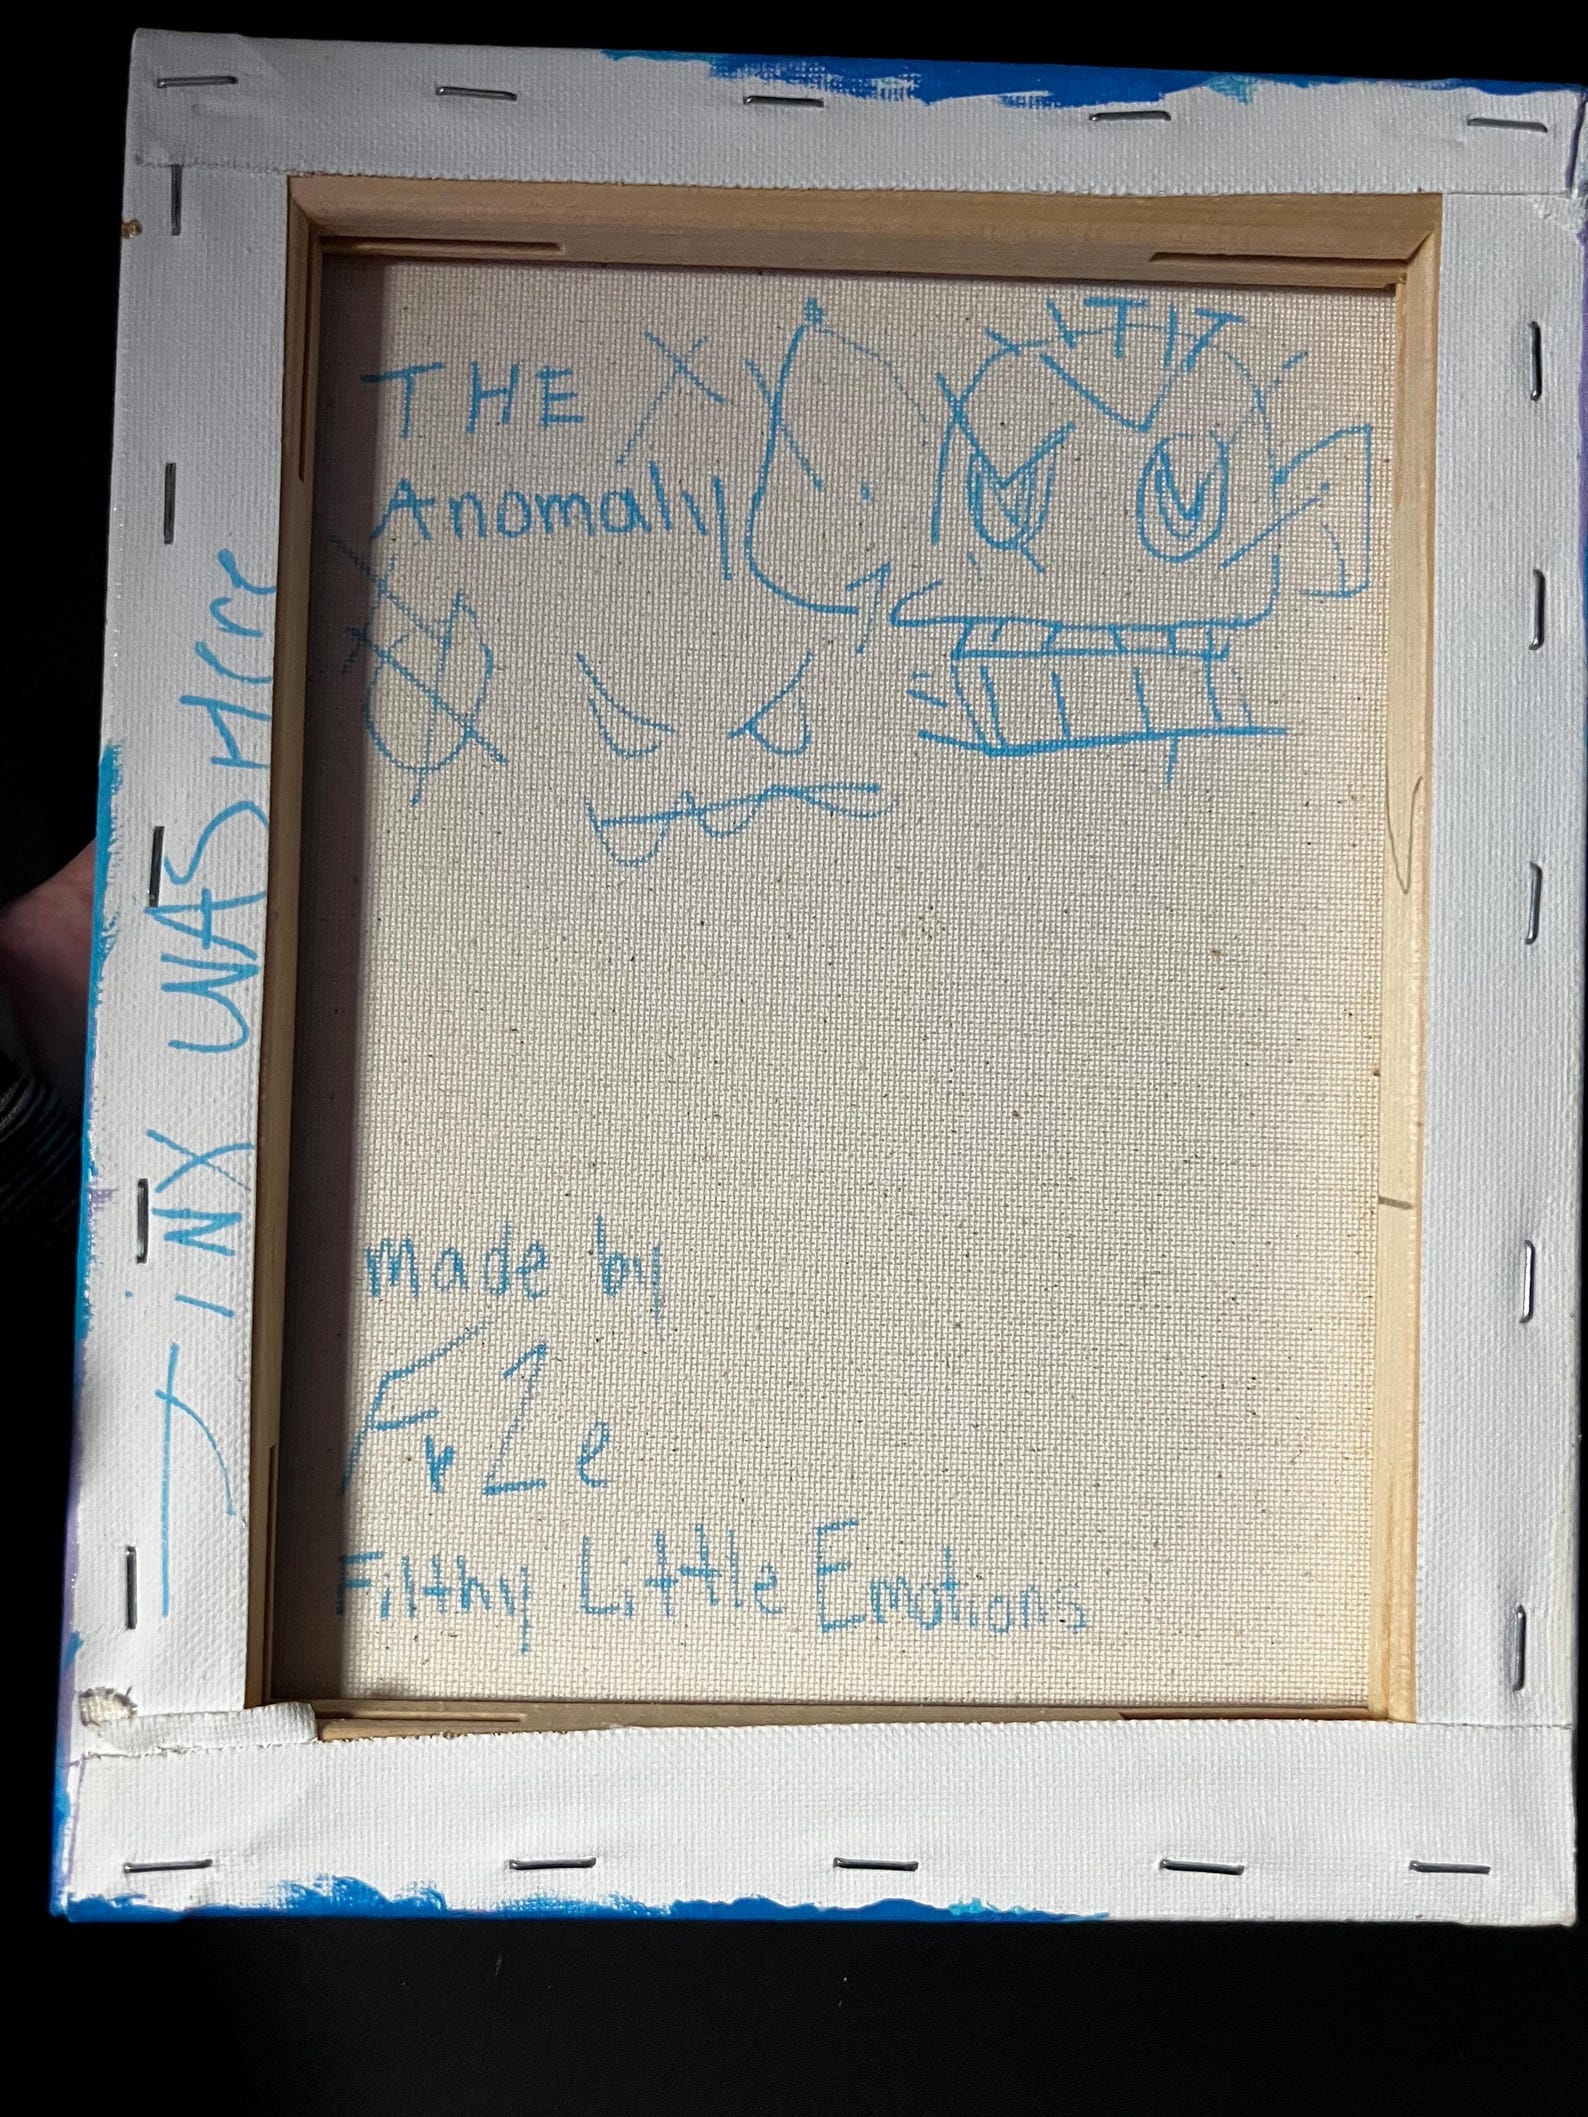 THE
Anomaly
made by
FrZe
Filthy Little Emotions
JiNX WAS HEre